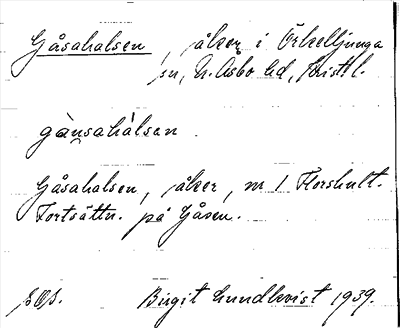 Gåsahalsen, åker i Örkelljunga
sn, N. Åsbo hd, Kristl.
gànsahálsan.
Gåsahalsen, åker, nr 1 Florshult.
Fortsättn. på Gåsen.
Birgit Lundkvist 1939.